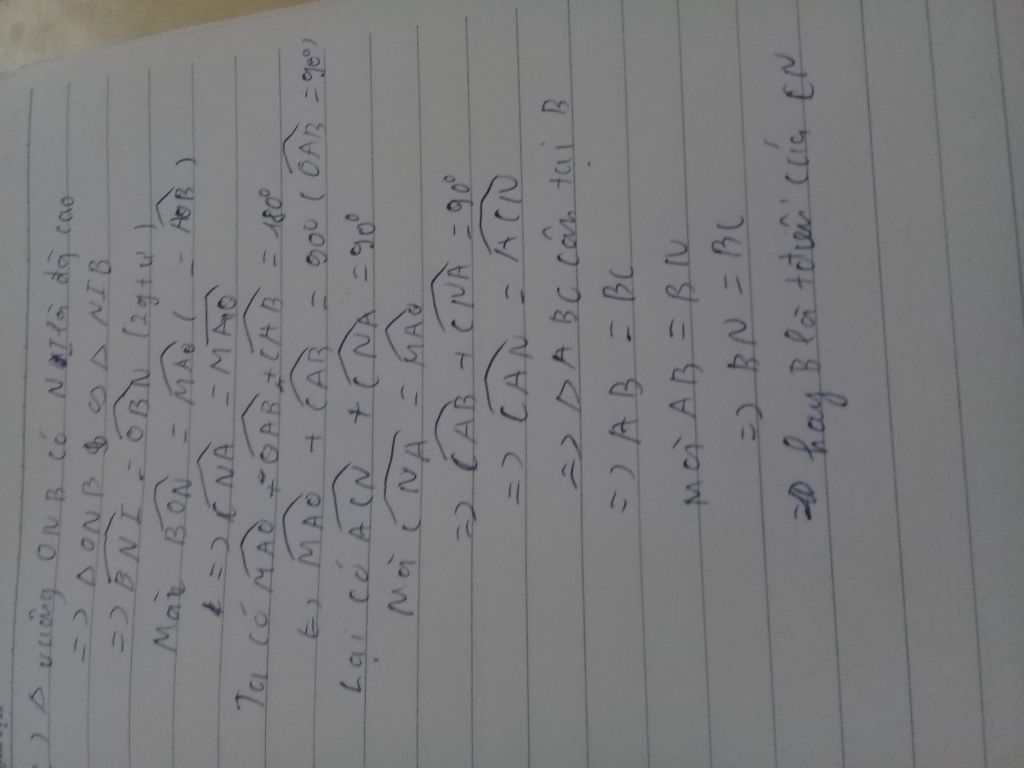 ) Δ vuông ONB có NI là đg cao
=> Δ ONB ∽ Δ NIB
=> BNI = OBN (2g+ư)
Mà BON = MAO ( = AOB )
=> CNA = MAO
Ta có MAO + OAB + CAB = 180°
=> MAO + CAB = 90° ( OAB = 90° )
Lại có ACN + CNA = 90°
Mà CNA = MAO
=> CAB + CNA = 90°
=> CAN = ACN
=> Δ ABC cân tại B
=> AB = BC
Mà AB = BN
=> BN = BC
=> hay B là tđiểm của CN